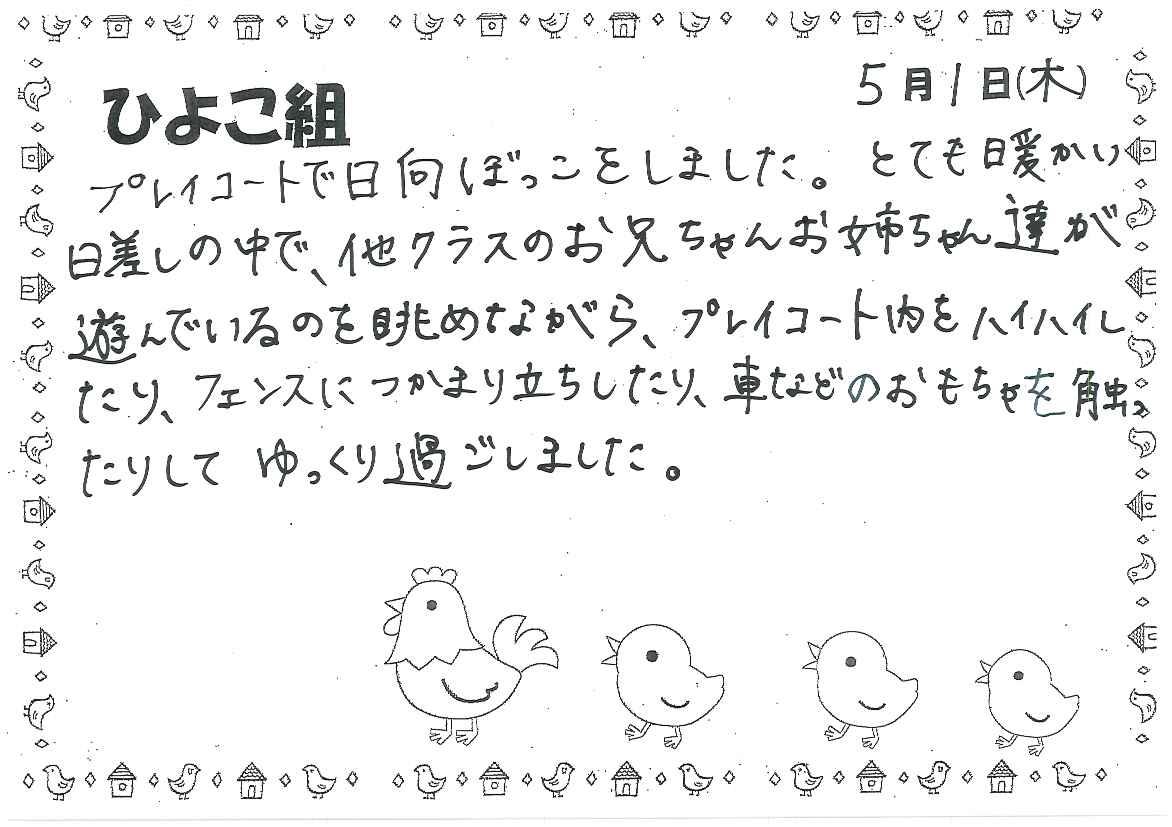 5月1日(木)
ひよこ組
プレイコートで日向ぼっこをしました。とても暖かい
日差しの中で、他クラスのお兄ちゃんお姉ちゃん達が
遊んでいるのを眺めながら、プレイコート内をハイハイし
たり、フェンスにつかまり立ちしたり、車などのおもちゃを触っ
たりして ゆっくり過ごしました。